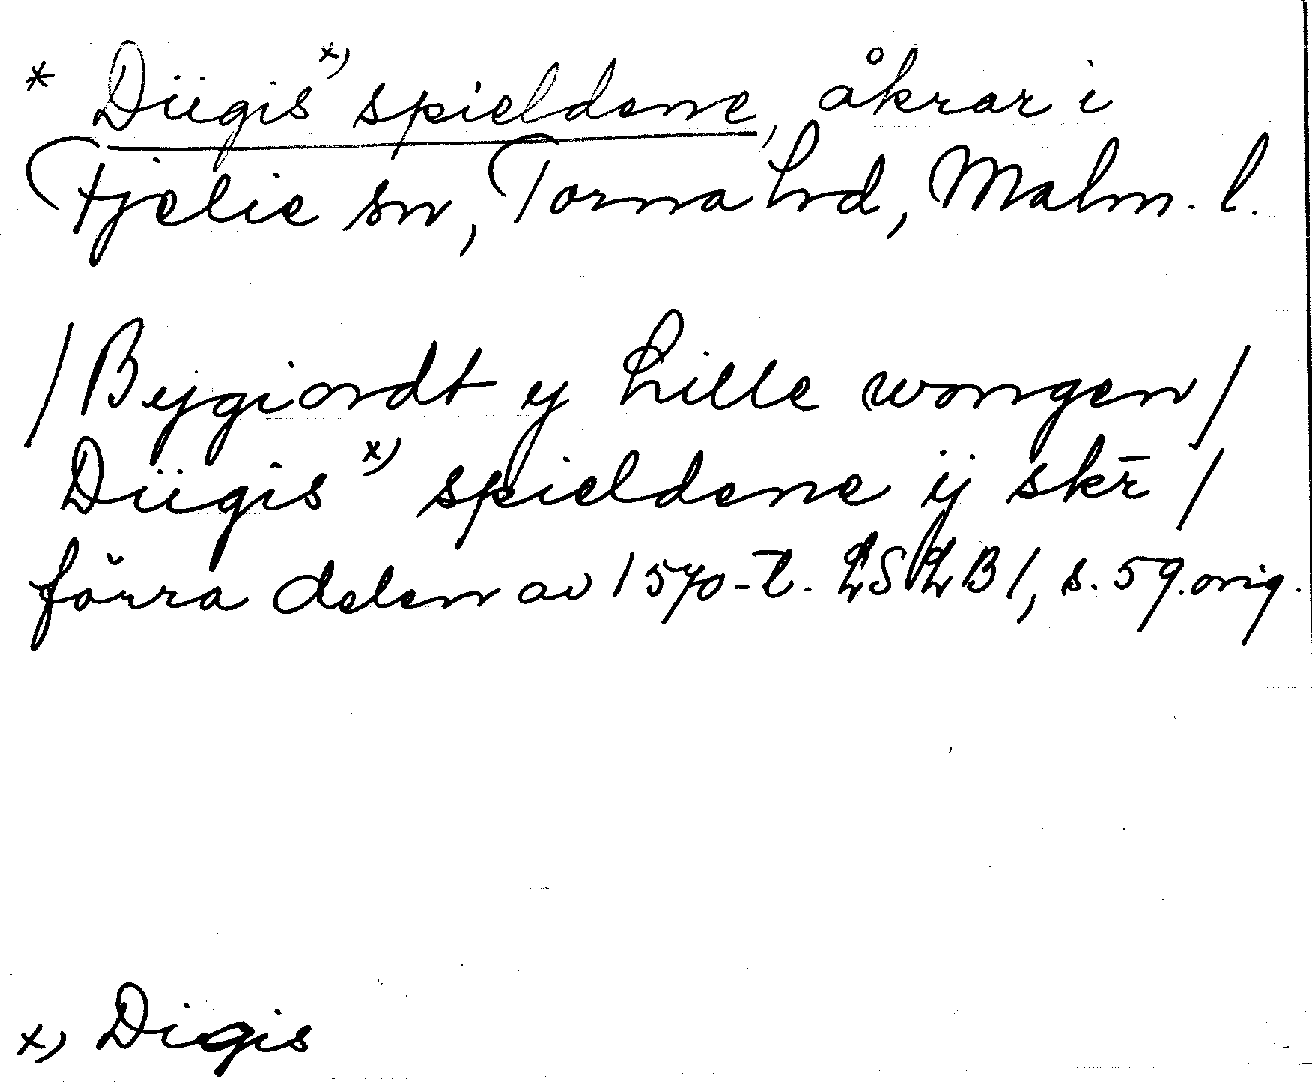 * Diigis x) spieldene, åkrar i
Fjelie sn, Torna hd, Malm. l.
/Bygiordt y Lille wongen/
Diigis x) spieldene ij skr /
förra delen av 1570-t. LSLB 1, s. 59. orig.
x) Digis